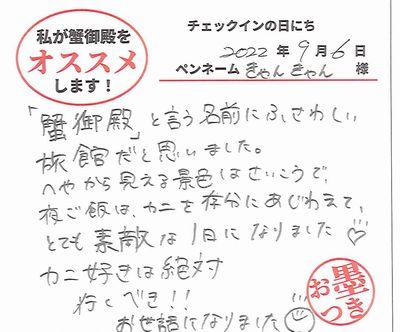 私が蟹御殿を
オススメ
します！
チェックインの日にち
2022 年 9 月 6 日
ペンネーム きゃんきゃん 様
「蟹御殿」と言う名前にふさわしい
旅館だと思いました。
へやから見える景色はさいこうで、
夜ご飯は、カニを存分にあじわえて、
とても素敵な1日になりました
カニ好きは絶対
行くべき！！
お世話になりました
お墨つき